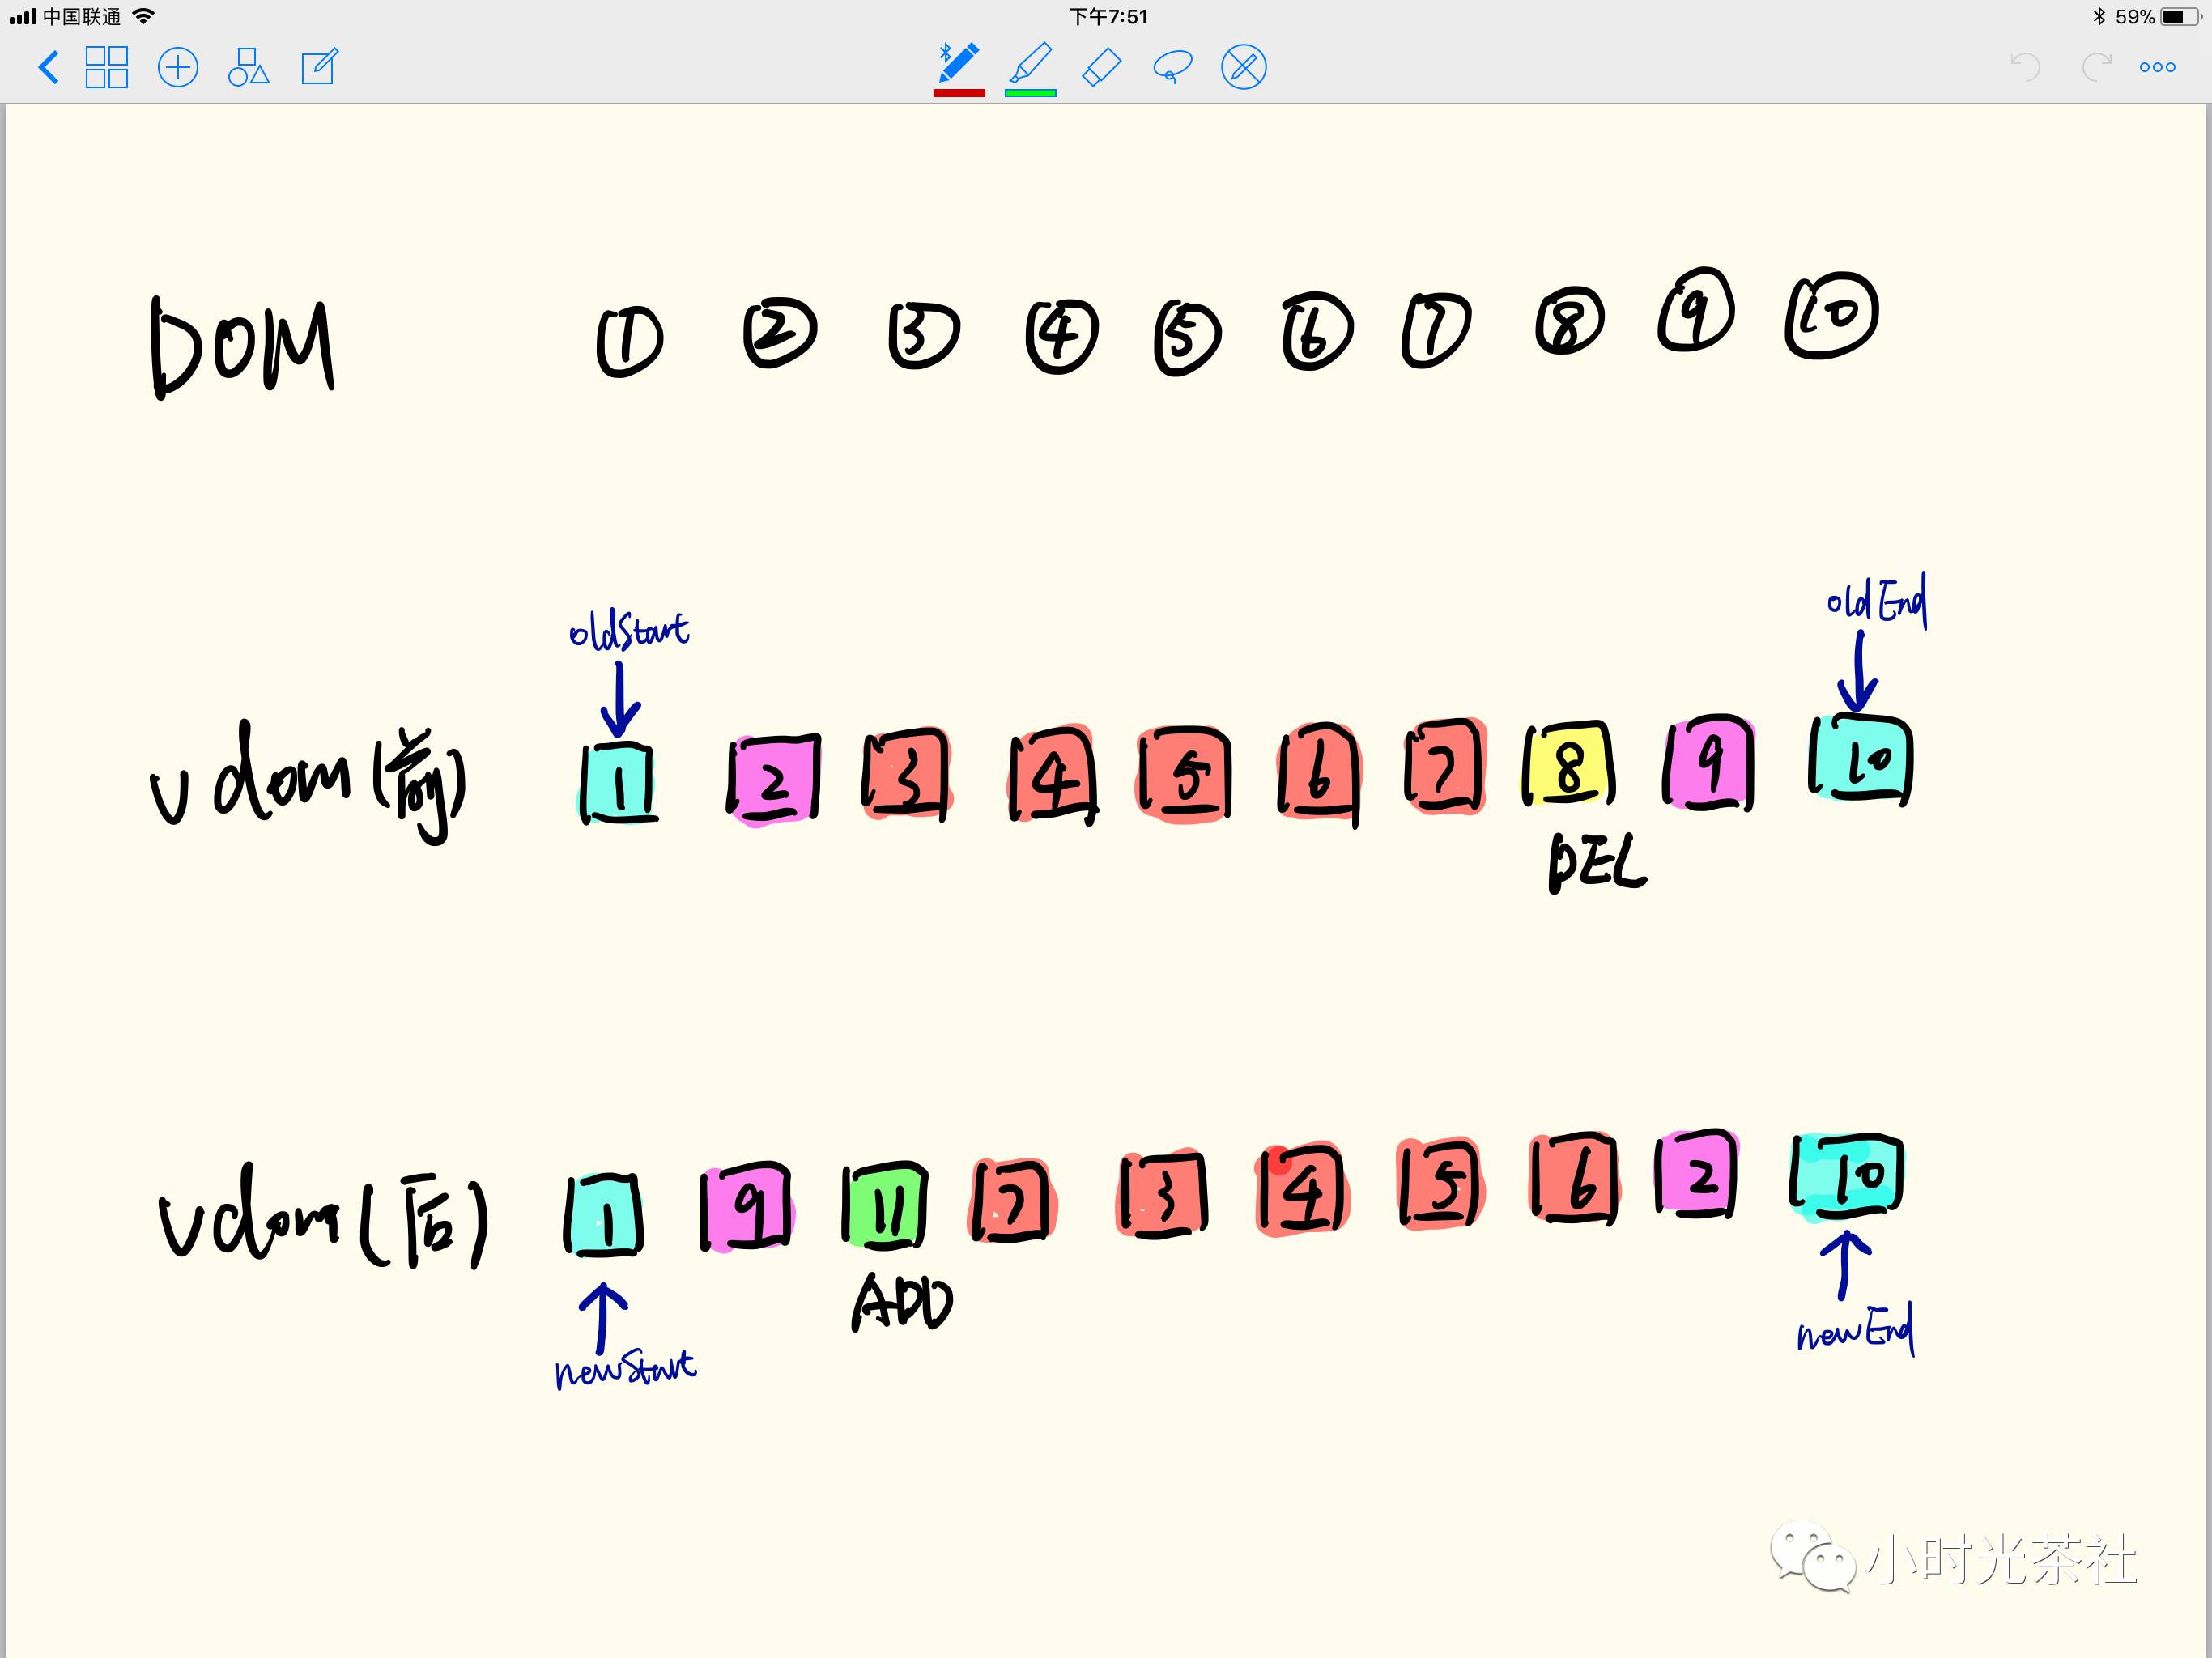 中国联通 下午7:51 59%
DOM 1 2 3 4 5 6 7 8 9 10
oldStart oldEnd
vdom(前) 1 2 3 4 5 6 7 8 9 10
DEL
vdom(后) 1 9 11 7 3 4 5 6 2 10
ADD
newStart newEnd
小时光茶社